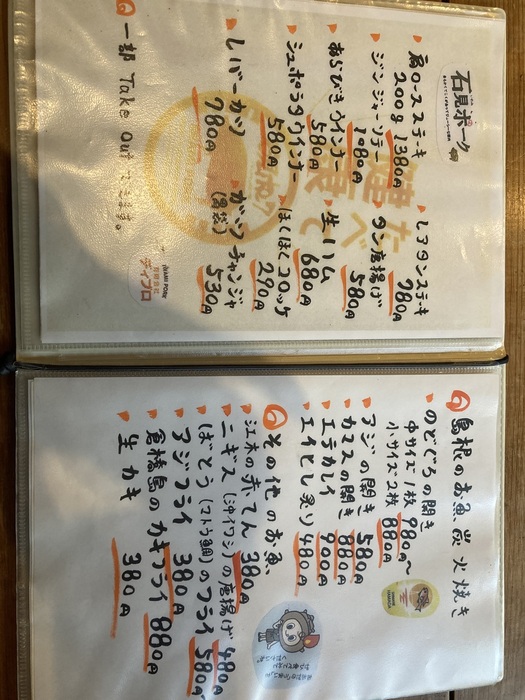 石見ポーク
肩ロースステーキ
200g 1380円
ジンジャーソテー
1080円
あらびきウインナー
580円
シュポラタウインナー
580円
レバーカツ
780円
レアタンステーキ
780円
タン唐揚げ
580円
生ハム
680円
ほくほくコロッケ
290円
ガツチャンジャ
(胃袋)
530円
一部 Take Out できます。
IWAMI PORK
有限会社
ディブロ
島根のお魚 炭火焼き
のどぐろの開き
中サイズ1枚 980円〜
小サイズ2枚 880円
アジの開き 580円
カマスの開き 880円
エテカレイ 900円
エイヒレ炙り 480円
その他のお魚
江木の赤てん 380円
ニギス(沖イワシ)の唐揚げ 480円
ばとう(マトウ鯛)のフライ 580円
アジフライ 380円
倉橋島のカキフライ 880円
生カキ 380円